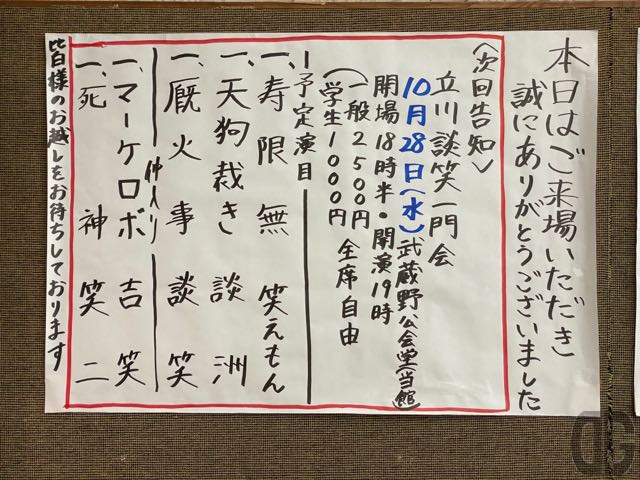 本日はご来場いただき
誠にありがとうございました
〈次回告知〉
立川談笑一門会
10月28日(水)武蔵野公会堂(当館)
開場18時半・開演19時
(一般2500円
学生1000円 全席自由
予定演目
一、寿限無 笑えもん
一、天狗裁き 談洲
一、厩火事 談笑
仲入り
一、マーケロボ 吉笑
一、死神 笑二
皆様のお越しをお待ちしております
DG